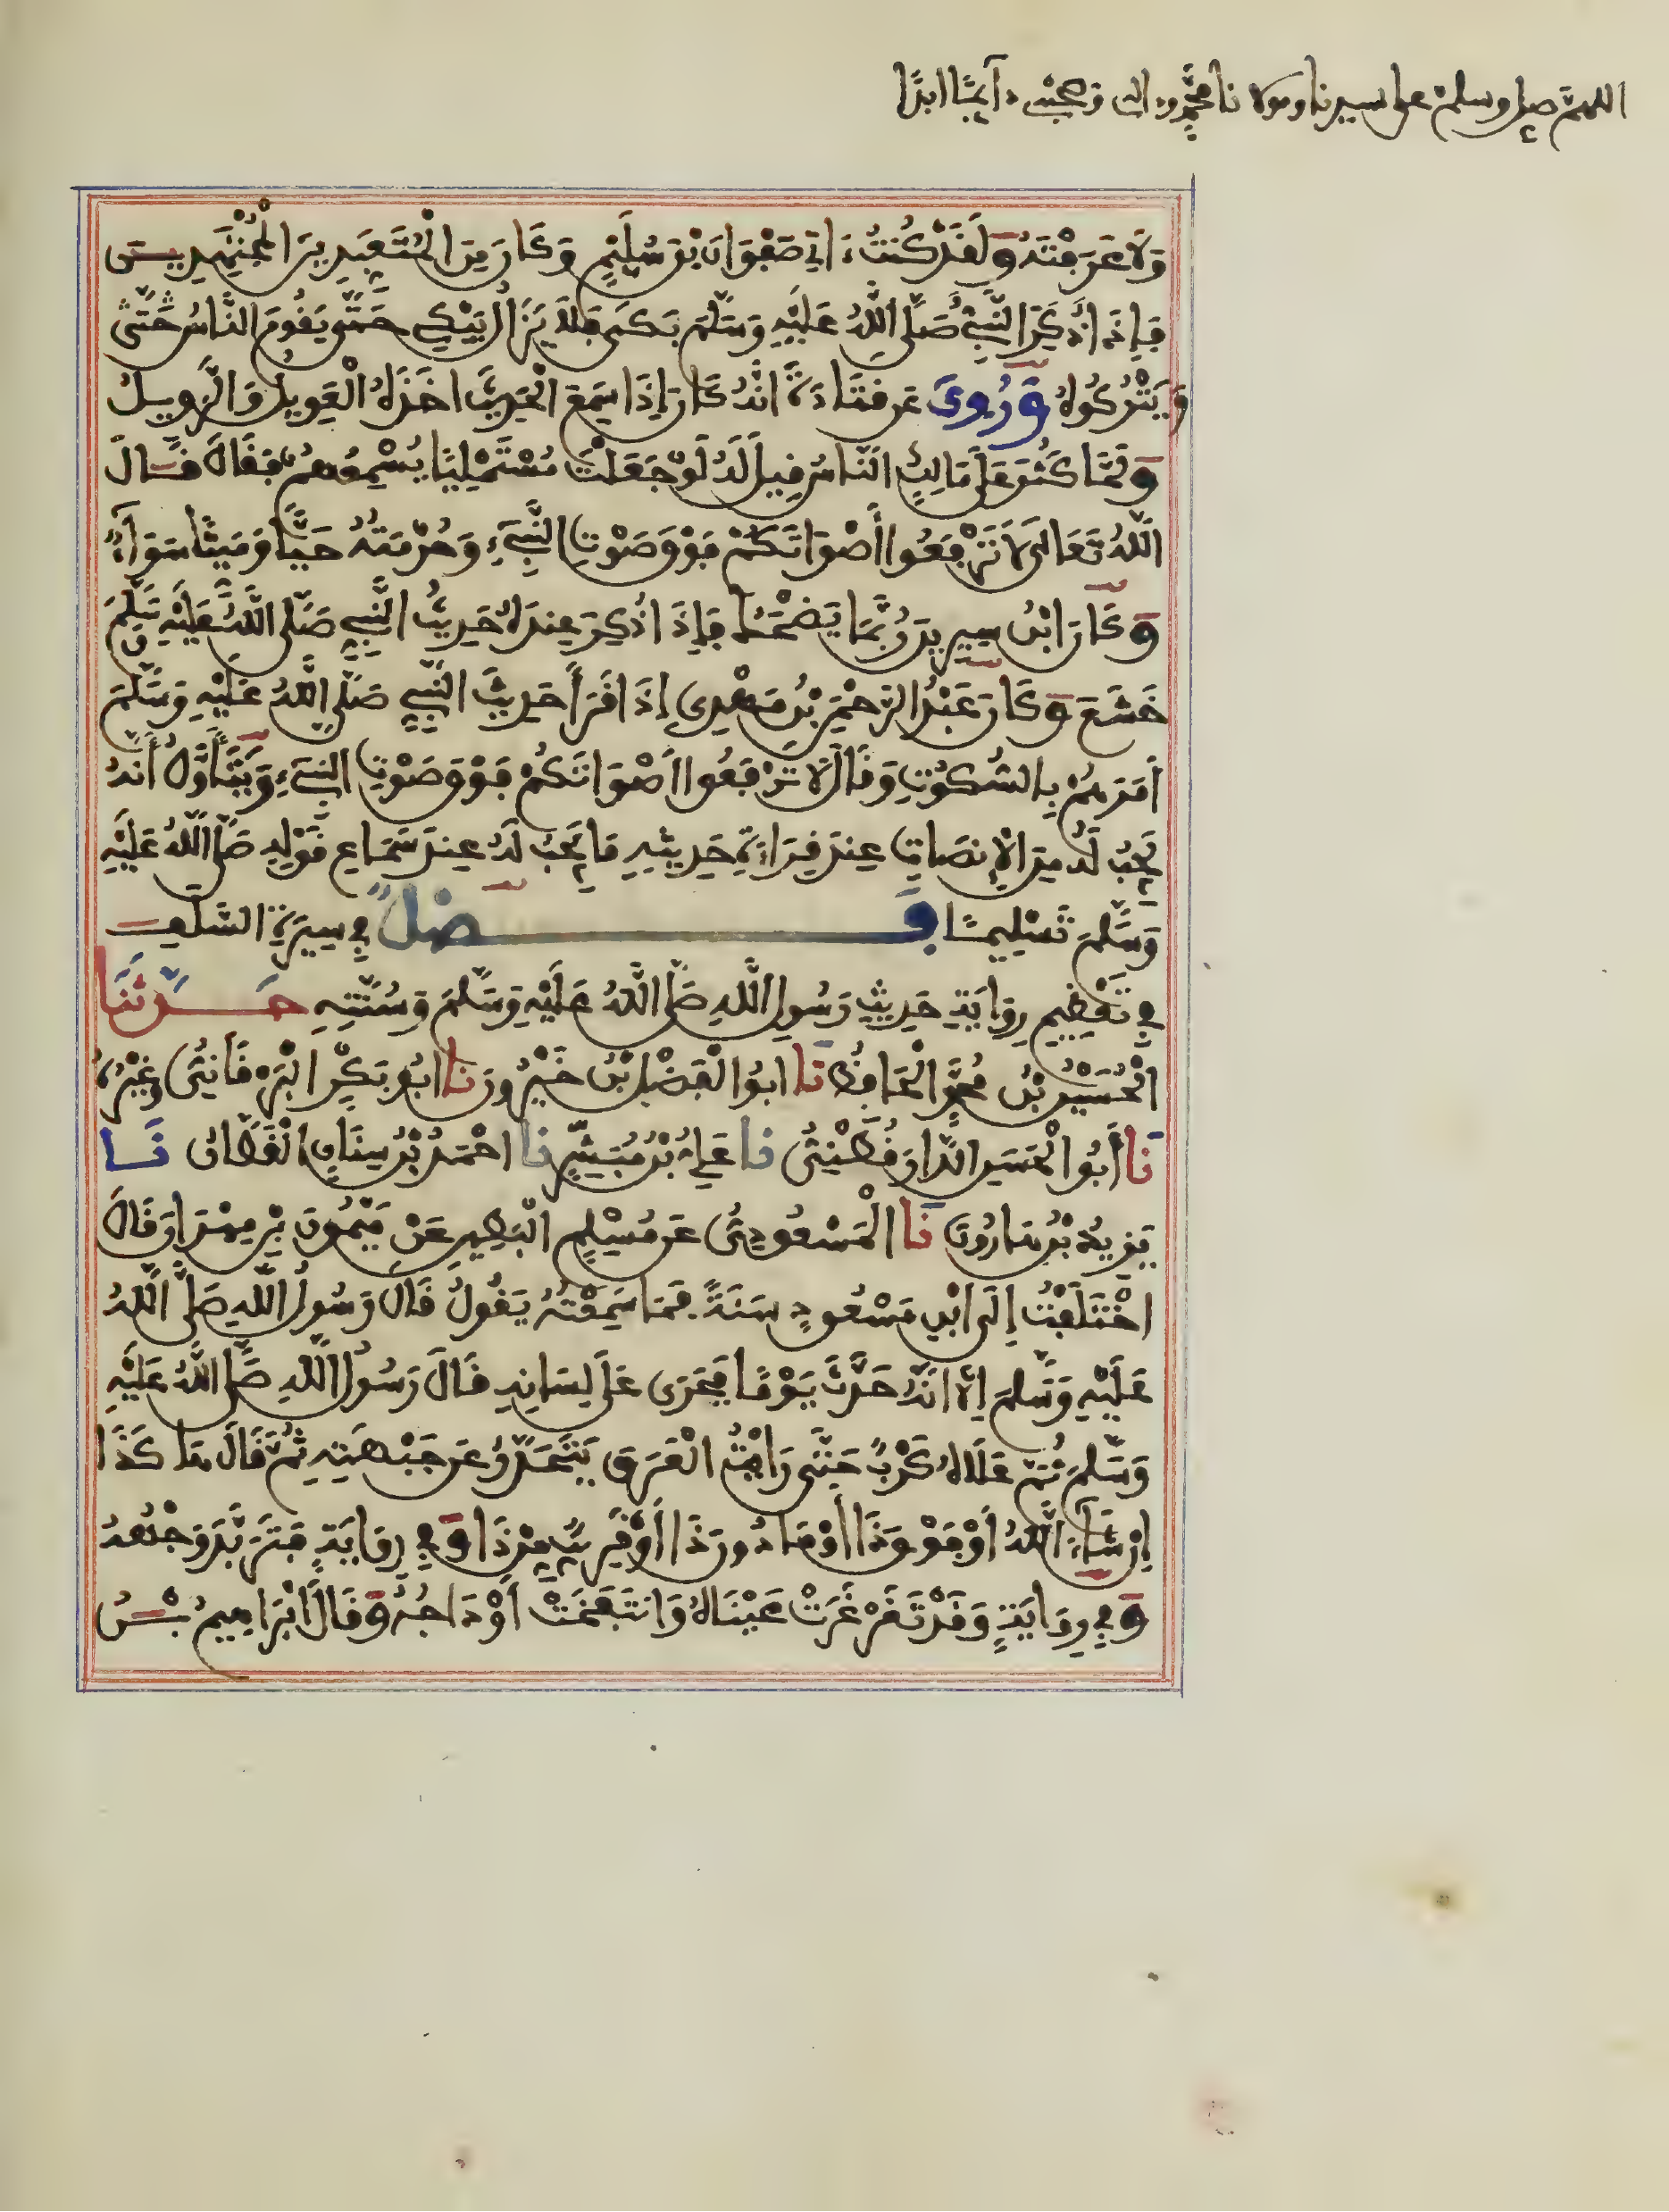 اللهم صل وسلم على سيدنا ومولانا محمد وءاله وصحبه دآيما ابدا
وَلَا عَرَفْتَهُ وَلَقَدْ كُنتُ ءَاتِي صَفْوَانَ بْنَ سُلَيْمٍ وَكَانَ مِنَ الْمُتَعَبِّدِينَ الْمُجْتَهِدِيـنَ
فَإِذَا ذُكِرَ النَّبِيُّ صَلَّى اللَّهُ عَلَيْهِ وَسَلَّمَ بَكَى فَلَا يَزَالُ يَبْكِي حَتَّى يَقُومَ النَّاسُ عَنْهُ
وَيَتْرُكُوهُ وَرُوِيَ عَن قَتَادَةَ أَنَّهُ كَانَ إِذَا سَمِعَ الْحَدِيثَ اخَذَهُ الْعَوِيلُ وَالزَّوِيلُ
وَلَمَّا كَثُرَ عَلَى مَالِكٍ النَّاسُ قِيلَ لَهُ لَوْ جَعَلْتَ مُسْتَمْلِيًا يُسْمِعُهُمْ فَقَالَ قَـالَ
اللَّهُ تَعَالَى لَا تَرْفَعُوا أَصْوَاتَكُمْ فَوْقَ صَوْتِ النَّبِيءِ وَحُرْمَتُهُ حَيًّا وَمَيِّتًا سَوَآءٌ
وَكَانَ ابْنُ سِيرِينَ رُبَّمَا يَضْحَكُ فَإِذَا ذُكِرَ عِندَهُ حَدِيثُ النَّبِيِّ صَلَّى اللَّهُ عَلَيْهِ وَسَلَّمَ
خَشَعَ وَكَانَ عَبْدُ الرَّحْمٰنِ بْنُ مَهْدِيٍّ إِذَا قَرَأَ حَدِيثَ النَّبِيِّ صَلَّى اللَّهُ عَلَيْهِ وَسَلَّمَ
أَمَرَهُمْ بِالسُّكُوتِ وَقَالَ لَا تَرْفَعُوا أَصْوَاتَكُمْ فَوْقَ صَوْتِ النَّبِيءِ وَيَتَأَوَّلُ أَنَّهُ
يَجِبُ لَهُ مِنَ الْإِنصَاتِ عِندَ قِرَاءَةِ حَدِيثِهِ مَا يَجِبُ لَهُ عِندَ سَمَاعِ قَوْلِهِ صَلَّى اللَّهُ عَلَيْهِ
وَسَلَّمَ تَسْلِيمًا فَـصْلٌ فِي سِيرَةِ السَّلَفِ
فِي تَعْظِيمِ رِوَايَةِ حَدِيثِ رَسُولِ اللَّهِ صَلَّى اللَّهُ عَلَيْهِ وَسَلَّمَ وَسُنَّتِهِ حَـدَّثَنَا
الْحُسَيْنُ بْنُ مُحَمَّدٍ الْحَافِظُ نَا ابُو الْفَضْلِ بْنُ خَيْرُونَ نَا ابُو بَكْرٍ الْبَرْقَانِيُّ وَغَيْرُهُ
نَا أَبُو الْحَسَنِ الدَّارَقُطْنِيُّ نَا عَلِيُّ بْنُ مُبَشِّرٍ نَا احْمَدُ بْنُ سِنَانٍ الْقَطَّانُ نَـا
يَزِيدُ بْنُ هَارُونَ نَا الْمَسْعُودِيُّ عَن مُسْلِمٍ الْبَطِينِ عَنْ مَيْمُونِ بْنِ مِهْرَانَ قَالَ
اخْتَلَفْتُ إِلَى ابْنِ مَسْعُودٍ سَنَةً فَمَا سَمِعْتُهُ يَقُولُ قَالَ رَسُولُ اللَّهِ صَلَّى اللَّهُ
عَلَيْهِ وَسَلَّمَ إِلَّا أَنَّهُ حَدَّثَ يَوْمًا فَجَرَى عَلَى لِسَانِهِ قَالَ رَسُولُ اللَّهِ صَلَّى اللَّهُ عَلَيْهِ
وَسَلَّمَ ثُمَّ عَلَاهُ كَرْبٌ حَتَّى رَأَيْتُ الْعَرَقَ يَتَحَدَّرُ عَن جَبْهَتِهِ ثُمَّ قَالَ هَا كَذَا
إِن شَآءَ اللَّهُ أَوْ فَوْقَ ذَا أَوْ مَا دُونَ ذَا أَوْ قَرِيبٌ مِنْ ذَا وَفِي رِوَايَةٍ فَتَرَبَّدَ وَجْهُهُ
وَفِي رِوَايَةٍ وَقَدْ تَغَرْغَرَتْ عَيْنَاهُ وَانتَفَخَتْ أَوْدَاجُهُ وَقَالَ ابْرَاهِيمُ بْـنُ